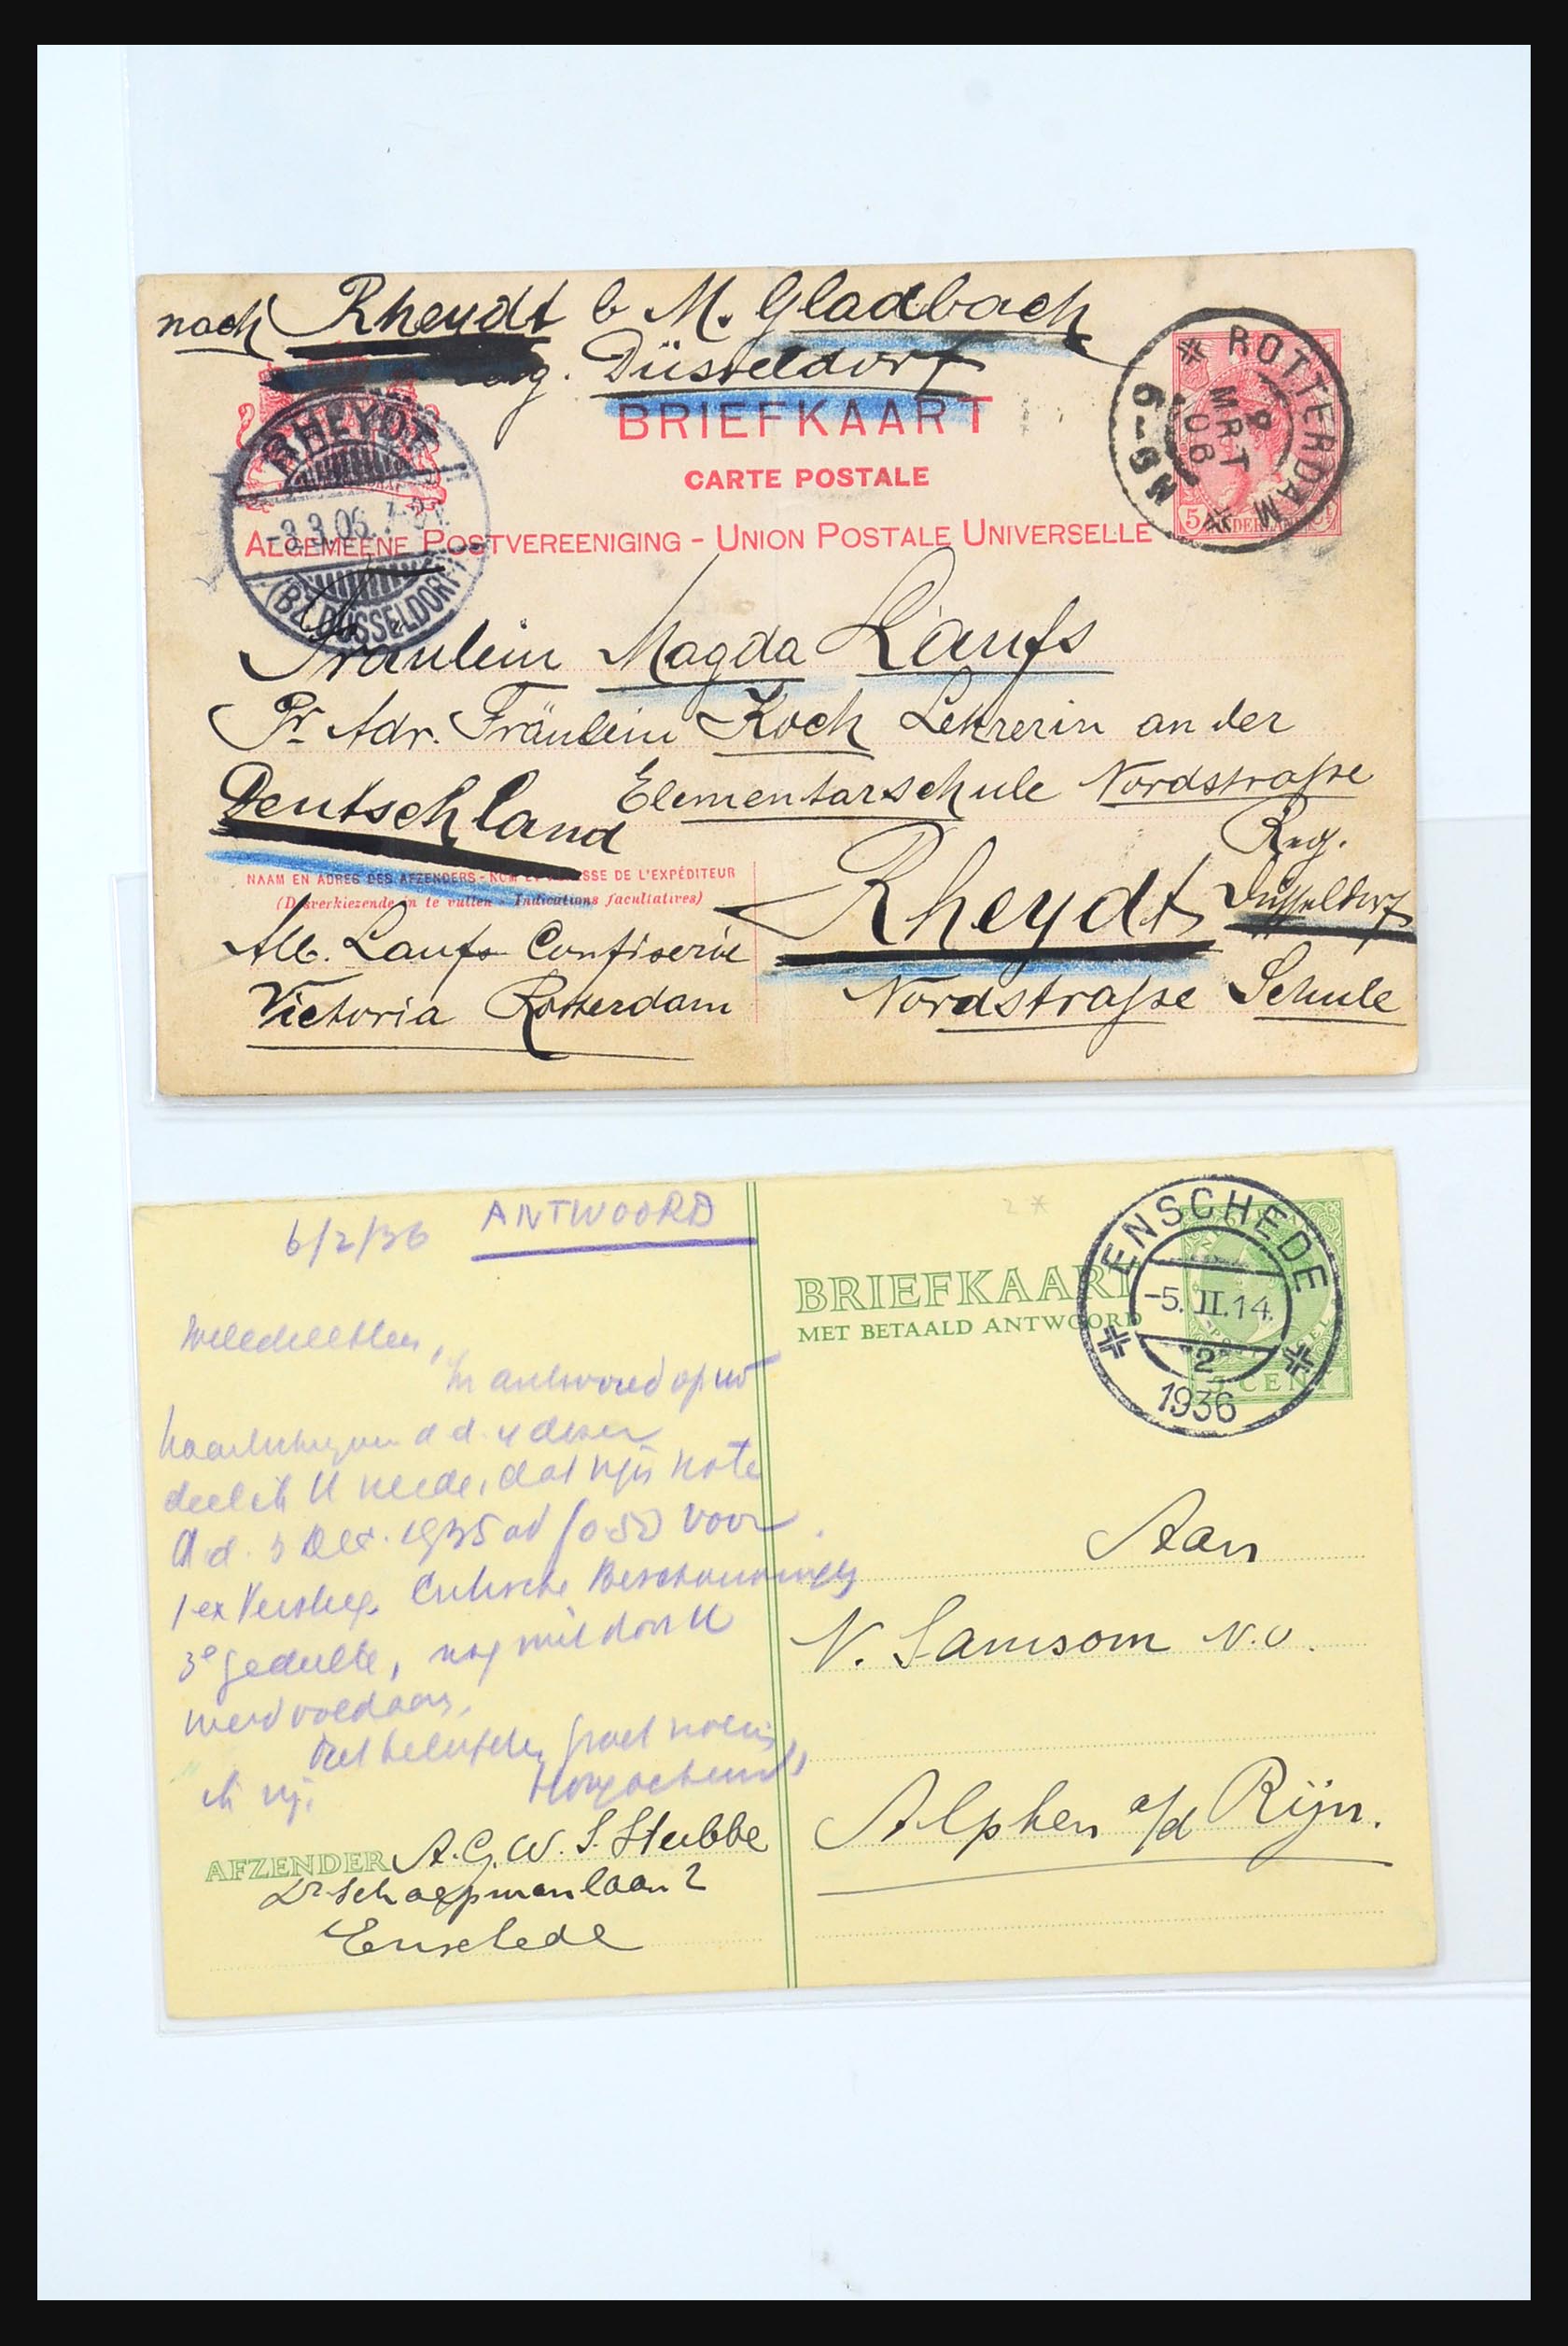 nach Rheydt b M. Gladbach
Düsseldorf
BRIEFKAART
CARTE POSTALE
ALGEMEENE POSTVEREENIGING - UNION POSTALE UNIVERSELLE
ROTTERDAM
MRT
06
RHEYDT
-3.3.06.
(BZ. DÜSSELDORF)
5
Fräulein Magda Laufs
Pr. Adr. Fräulein Koch Lehrerin an der
Elementarschule Nordstraße
Deutschland
Reg.
Rheydt Düsseldorf
Nordstraße Schule
NAAM EN ADRES DES AFZENDERS - NOM ET ADRESSE DE L'EXPÉDITEUR
(Desverkiezende in te vullen - Indications facultatives)
Alb. Laufs Confiserie
Victoria Rotterdam
6/2/36 ANTWOORD
BRIEFKAART
MET BETAALD ANTWOORD
ENSCHEDE
-5.II.14.
2
1936
CENT
In antwoord op uw
d d. 4 dezer
deel ik U mede, dat mijn nota
d.d. 3 Dec. 1935 ad f 0.50 voor
1 ex Critische Beschouwingen
3e gedeelte, nog niet door U
werd voldaan.
Aan
N. Samsom N.V.
Alphen a/d Rijn.
AFZENDER A.G.W. S. Stubbe
Dr Schaepmanlaan 2
Enschede